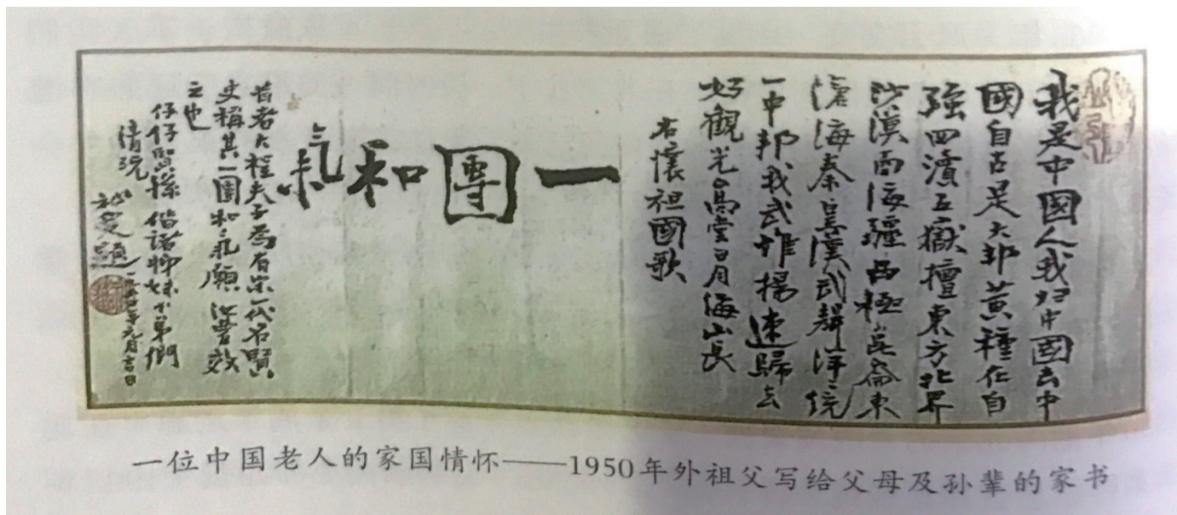 我是中國人我中國去中
國自古是大邦黃種在自
強四瀆五嶽擅東方北界
沙漠南海疆西極崑崙東
滄海秦皇漢武聲洋統
一中邦我武惟揚速歸去
好觀光高堂日月海山長
右懷祖國歌
一團和氣
昔者大程夫子為有宋一代名賢
史稱其一團和氣願汝曹效
之也
仔仔賢孫偕諸姊妹小弟們
清玩
題
年元月吉日
一位中国老人的家国情怀——1950年外祖父写给父母及孙辈的家书